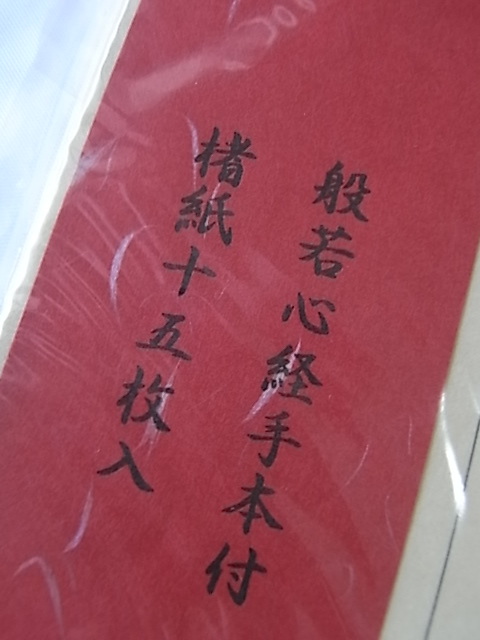 般若心経手本付
楮紙十五枚入